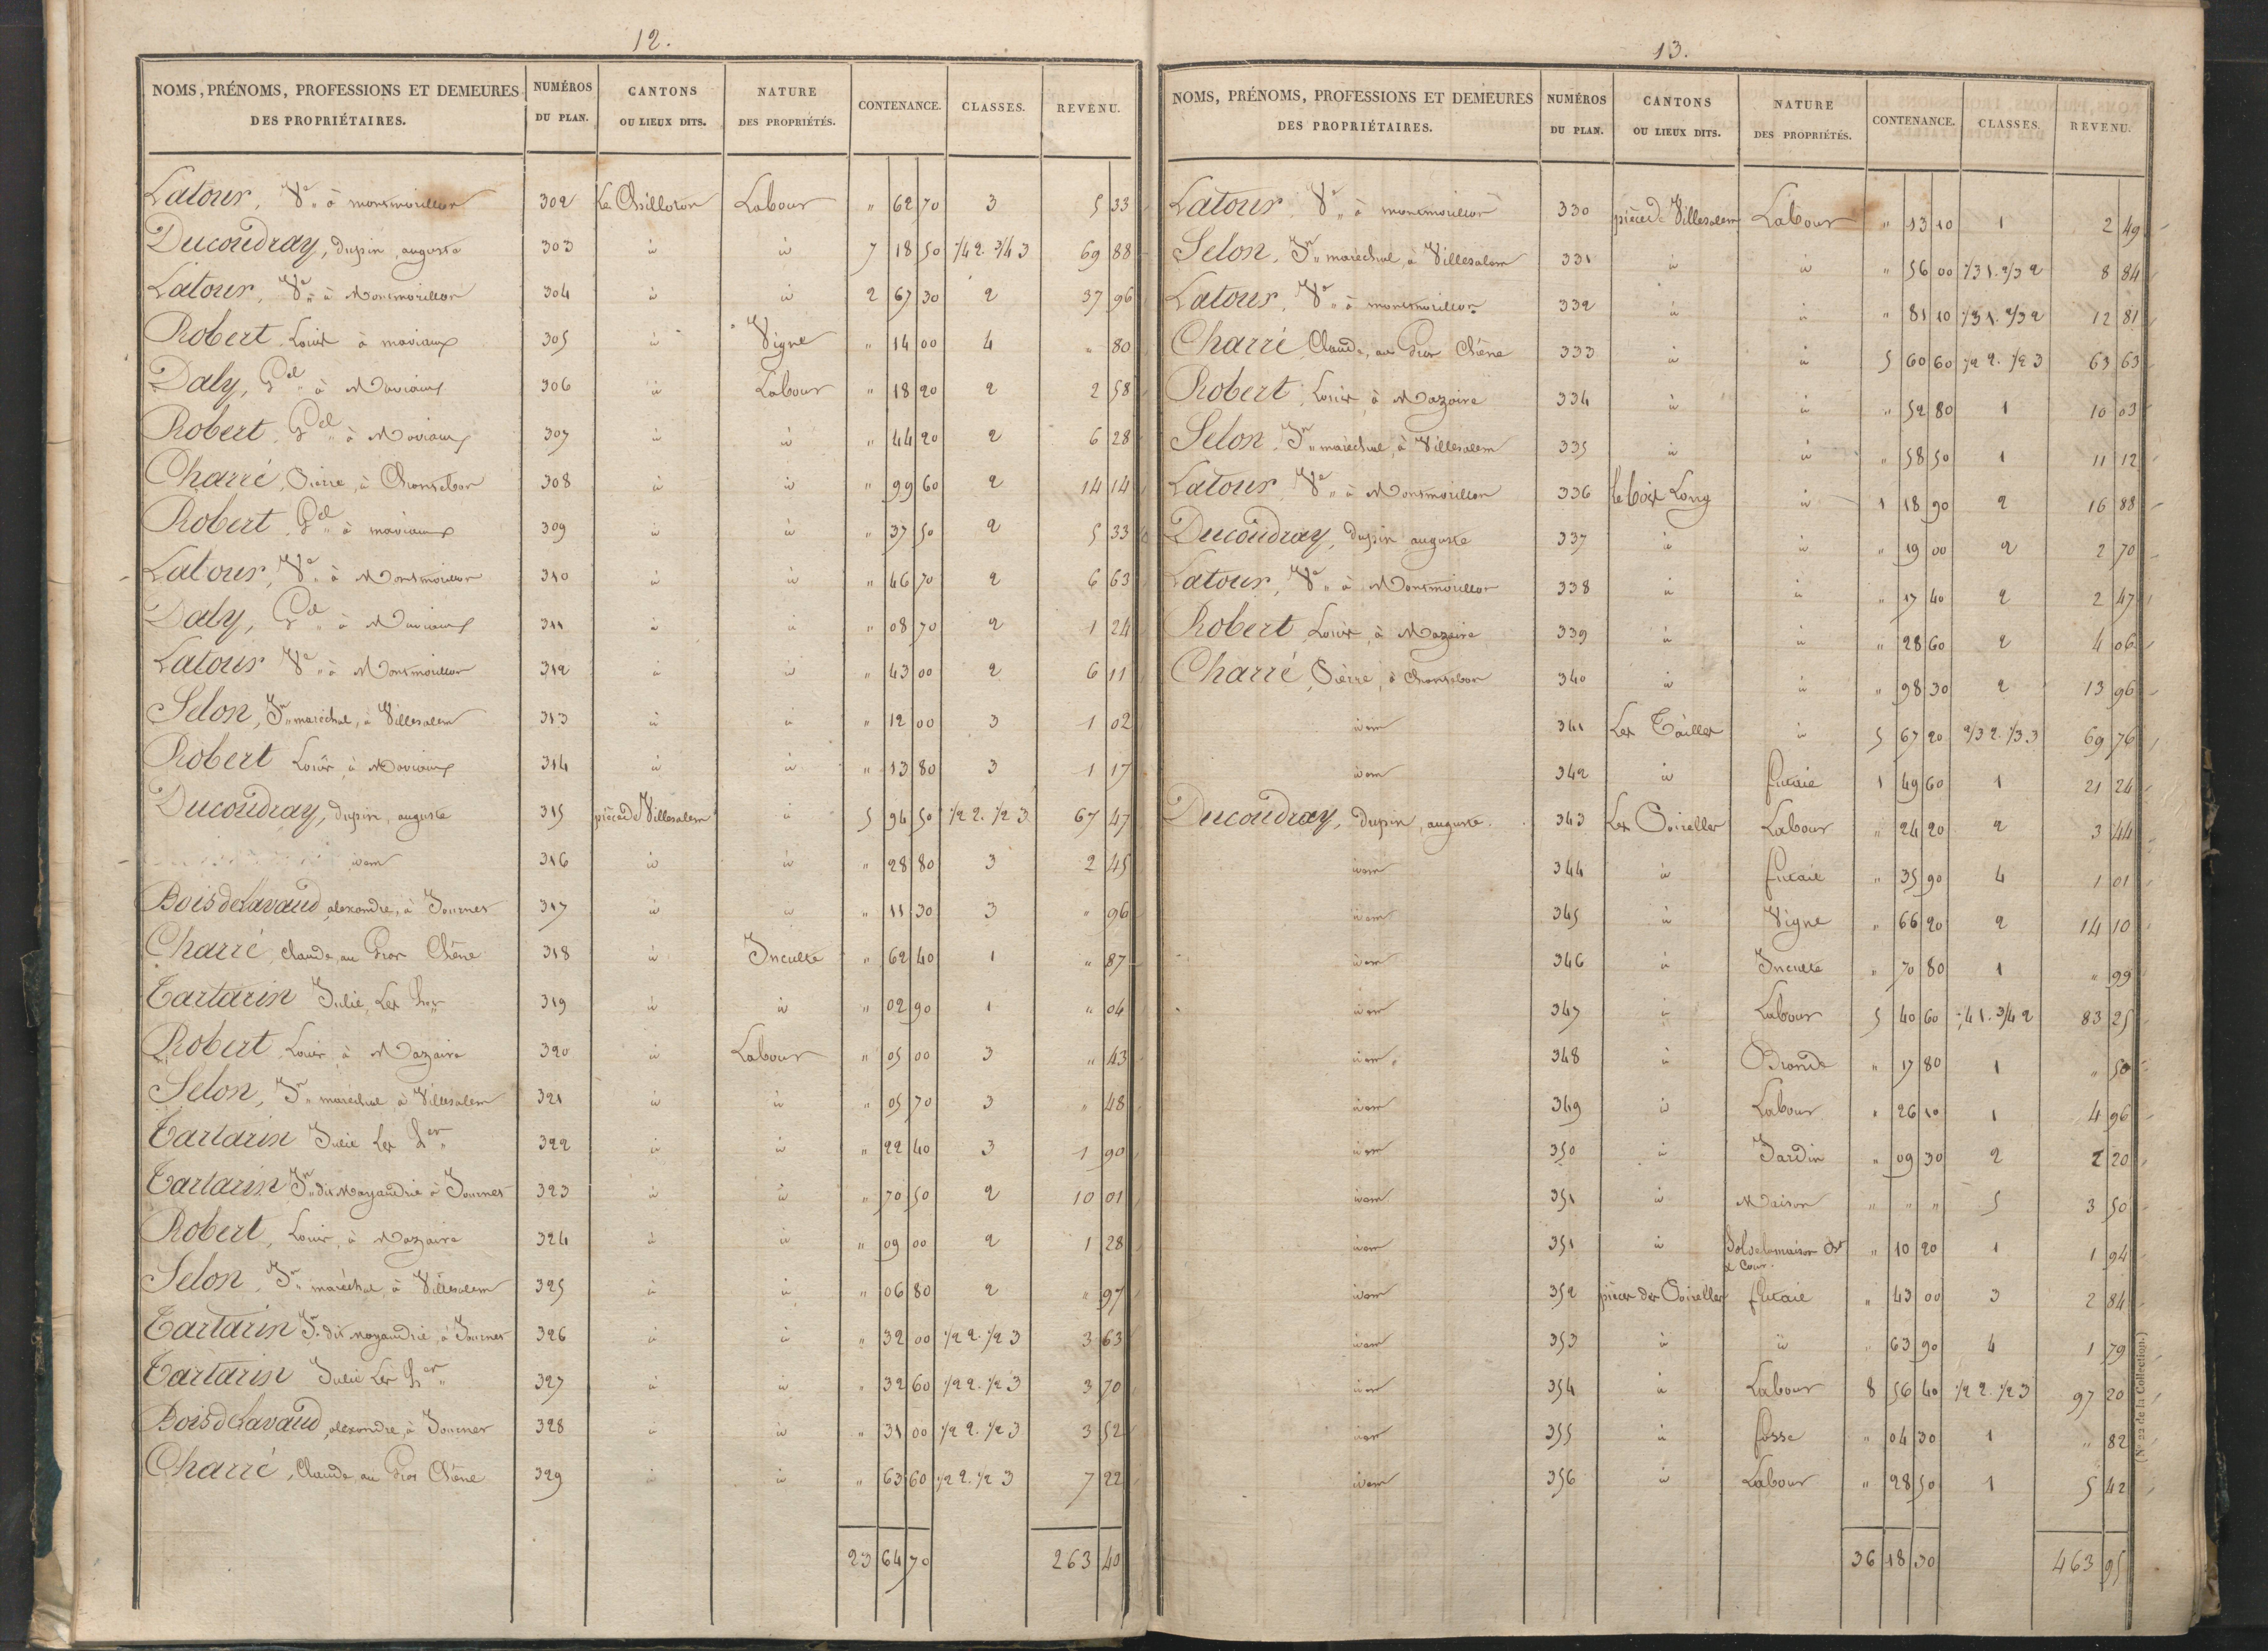 12.
NOMS, PRÉNOMS, PROFESSIONS ET DEMEURES DES PROPRIÉTAIRES. NUMÉROS DU PLAN. CANTONS OU LIEUX DITS. NATURE DES PROPRIÉTÉS. CONTENANCE. CLASSES. REVENU.
Latour, Ve à montmorillon 302 Labour " 62 70 3 5 33
Ducoudray, dupin, auguste 303 id id 7 18 50 1/4 2. 3/4 3 69 88
Latour, Ve à Montmorillon 304 id id 2 67 30 2 37 96
Robert Louis à maviaux 305 id Vigne " 14 00 4 " 80
Daly, Gel à Maviaux 306 id Labour " 18 20 2 2 58
Robert Gel à Maviaux 307 id id " 44 20 2 6 28
Charré, Pierre, à Chantebon 308 id id " 99 60 2 14 14
Robert Gel à maviaux 309 id id " 37 50 2 5 33
Latour, Ve à Montmorillon 310 id id " 46 70 2 6 63
Daly, Gel à Maviaux 311 id id " 08 70 2 1 24
Latour Ve à Montmorillon 312 id id " 43 00 2 6 11
Selon, Jn maréchal, à Villesalem 313 id id " 12 00 3 1 02
Robert Louis, à Maviaux 314 id id " 13 80 3 1 17
Ducoudray, dupin, auguste 315 pièce de Villesalem id 5 94 50 1/2 2. 1/2 3 67 47
idem 316 id id " 28 80 3 2 45
Bois de Lavaud, alexandre, à Journet 317 id id " 11 30 3 " 96
Charré, Claude, au Gros Chêne 318 id Inculte " 62 40 1 " 87
Tartarin Julie, Les 319 id id " 02 90 1 " 04
Robert Louis, à Mazaire 320 id Labour " 05 00 3 " 43
Selon, Jn maréchal à Villesalem 321 id id " 05 70 3 " 48
Tartarin Julie Les her 322 id id " 22 40 3 1 90
Tartarin Jn dit Moyaudrie à Journet 323 id id " 70 50 2 10 01
Robert, Louis, à Mazaire 324 id id " 09 00 2 1 28
Selon, Jn maréchal, à Villesalem 325 id id " 06 80 2 " 97
Tartarin Jn dit moyaudrie, à Journet 326 id id " 32 00 1/2 2. 1/2 3 3 63
Tartarin Julie Les her 327 id id " 32 60 1/2 2. 1/2 3 3 70
Bois de Lavaud, alexandre, à Journet 328 id id " 31 00 1/2 2. 1/2 3 3 52
Charré, Claude, au Gros Chêne 329 id id " 63 60 1/2 2. 1/2 3 7 22
23 64 70 263 40
13.
NOMS, PRÉNOMS, PROFESSIONS ET DEMEURES DES PROPRIÉTAIRES. NUMÉROS DU PLAN. CANTONS OU LIEUX DITS. NATURE DES PROPRIÉTÉS. CONTENANCE. CLASSES. REVENU.
Latour Ve à montmorillon 330 pièce de Villesalem Labour " 13 10 1 2 49
Selon, Jn maréchal, à Villesalem 331 id id " 56 00 1/3 1. 2/3 2 8 84
Latour, Ve à montmorillon 332 id id " 81 10 1/3 1. 2/3 2 12 81
Charré Claude, au Gros Chêne 333 id id 5 60 60 1/2 2. 1/2 3 63 63
Robert, Louis, à Mazaire 334 id id " 52 80 1 10 03
Selon, Jn maréchal, à Villesalem 335 id id " 58 50 1 11 12
Latour Ve à Montmorillon 336 le bois Long id 1 18 90 2 16 88
Ducoudray, dupin auguste 337 id id " 19 00 2 2 70
Latour, Ve à Montmorillon 338 id id " 17 40 2 2 47
Robert Louis, à Mazaire 339 id id " 28 60 2 4 06
Charré, Pierre, à Chantebon 340 id id " 98 30 2 13 96
idem 341 Les Tailles id 5 67 20 2/3 2. 1/3 3 69 76
idem 342 id futaie 1 49 60 1 21 24
Ducoudray, dupin, auguste. 343 Les Labour " 24 20 2 3 44
idem 344 id futaie " 35 90 4 1 01
idem 345 id Vigne " 66 20 2 14 10
idem 346 id Inculte " 70 80 1 " 99
idem 347 id Labour 5 40 60 1/4 1. 3/4 2 83 25
idem 348 id Brande " 17 80 1 " 50
idem 349 id Labour " 26 10 1 4 96
idem 350 id Jardin " 09 30 2 2 20
idem 351 id Maison " " " 5 3 50
idem 351 id Sol de la maison et Cour. " 10 20 1 1 94
idem 352 pièce des futaie " 43 00 3 2 84
idem 353 id id " 63 90 4 1 79
idem 354 id Labour 8 56 40 1/2 2. 1/2 3 97 20
idem 355 id fosse " 04 30 1 " 82
idem 356 id Labour " 28 50 1 5 42
36 18 30 463 95
(N° 22 de la Collection.)